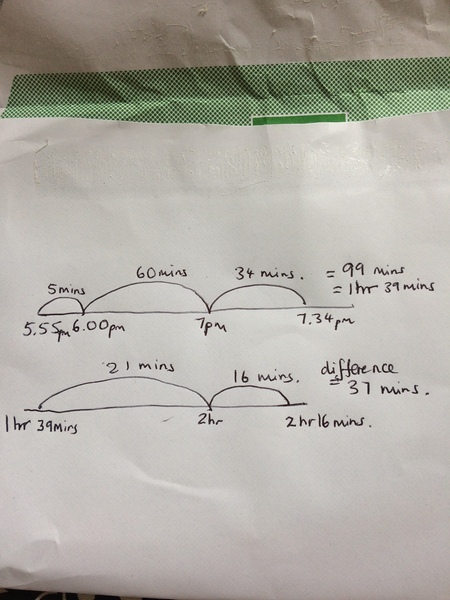 5mins
60mins
34 mins.
= 99 mins
= 1hr 39mins
5.55pm
6.00pm
7pm
7.34pm
21 mins
16 mins.
difference
= 37 mins.
1hr 39mins
2hr
2hr16mins.